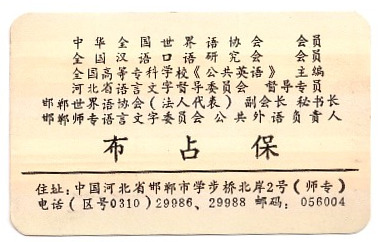 中华全国世界语协会 会员
全国汉语口语研究会 会员
全国高等专科学校《公共英语》 主编
河北省语言文字督导委员会 督导专员
邯郸世界语协会(法人代表) 副会长 秘书长
邯郸师专语言文字委员会 公共外语负责人
布占保
住址:中国河北省邯郸市学步桥北岸2号(师专)
电话(区号0310)29986、29988 邮码:056004